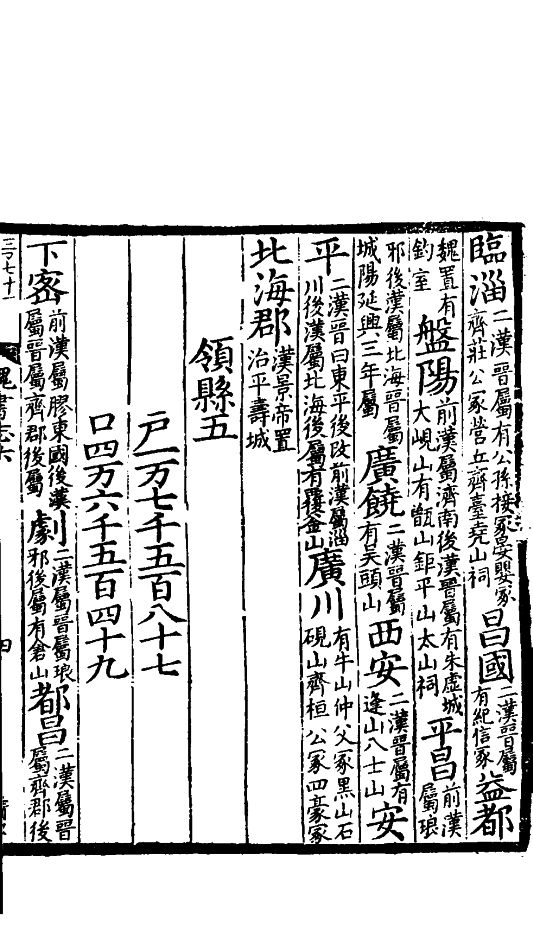 臨淄二漢晉屬有公孫接冢晏嬰冢齊莊公冢營丘齊臺堯山祠昌國二漢晉屬有紀信冢益都
魏置有釣室盤陽前漢屬濟南後漢晉屬有朱虛城大峴山有㽅山鉅平山太山祠平昌前漢屬琅
邪後漢屬北海晉屬城陽延興三年屬廣饒二漢晉屬有吴頭山西安二漢晉屬有逢山八士山安
平二漢晉曰東平後改前漢屬淄川後漢屬北海後屬有覆釜山廣川有牛山仲父冢黑山石硯山齊桓公冢四豪冢
北海郡漢景帝置治平壽城
領縣五
戸一万七千五百八十七
口四万六千五百四十九
下密前漢屬膠東國後漢屬晉屬齊郡後屬劇二漢屬晉屬琅邪後屬有倉山都昌二漢屬晉屬齊郡後
三百七十一
魏書志六
四